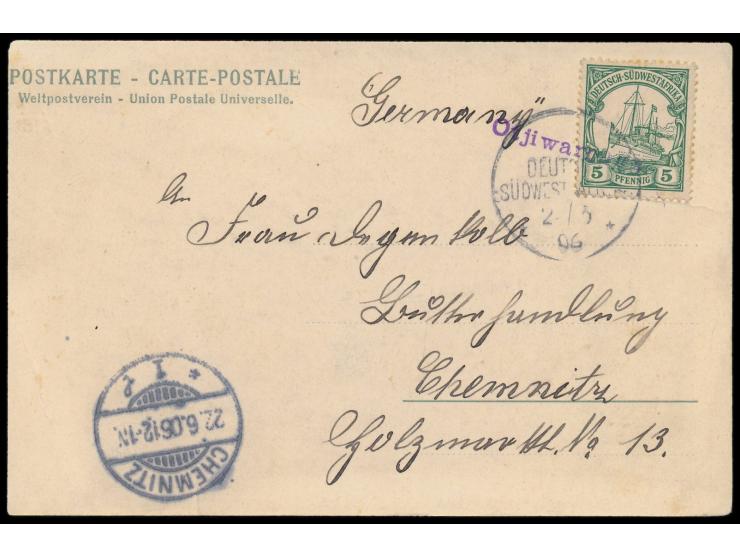 POSTKARTE - CARTE-POSTALE
Weltpostverein - Union Postale Universelle.
"Germany"
DEUTSCH-SÜDWESTAFRIKA
5 PFENNIG 5
SÜDWEST
06
An
Frau Degenkolb
Butterhandlung
Chemnitz
Holzmarkt. No 13.
CHEMNITZ
22.6.06 12-1N.
* 1 *